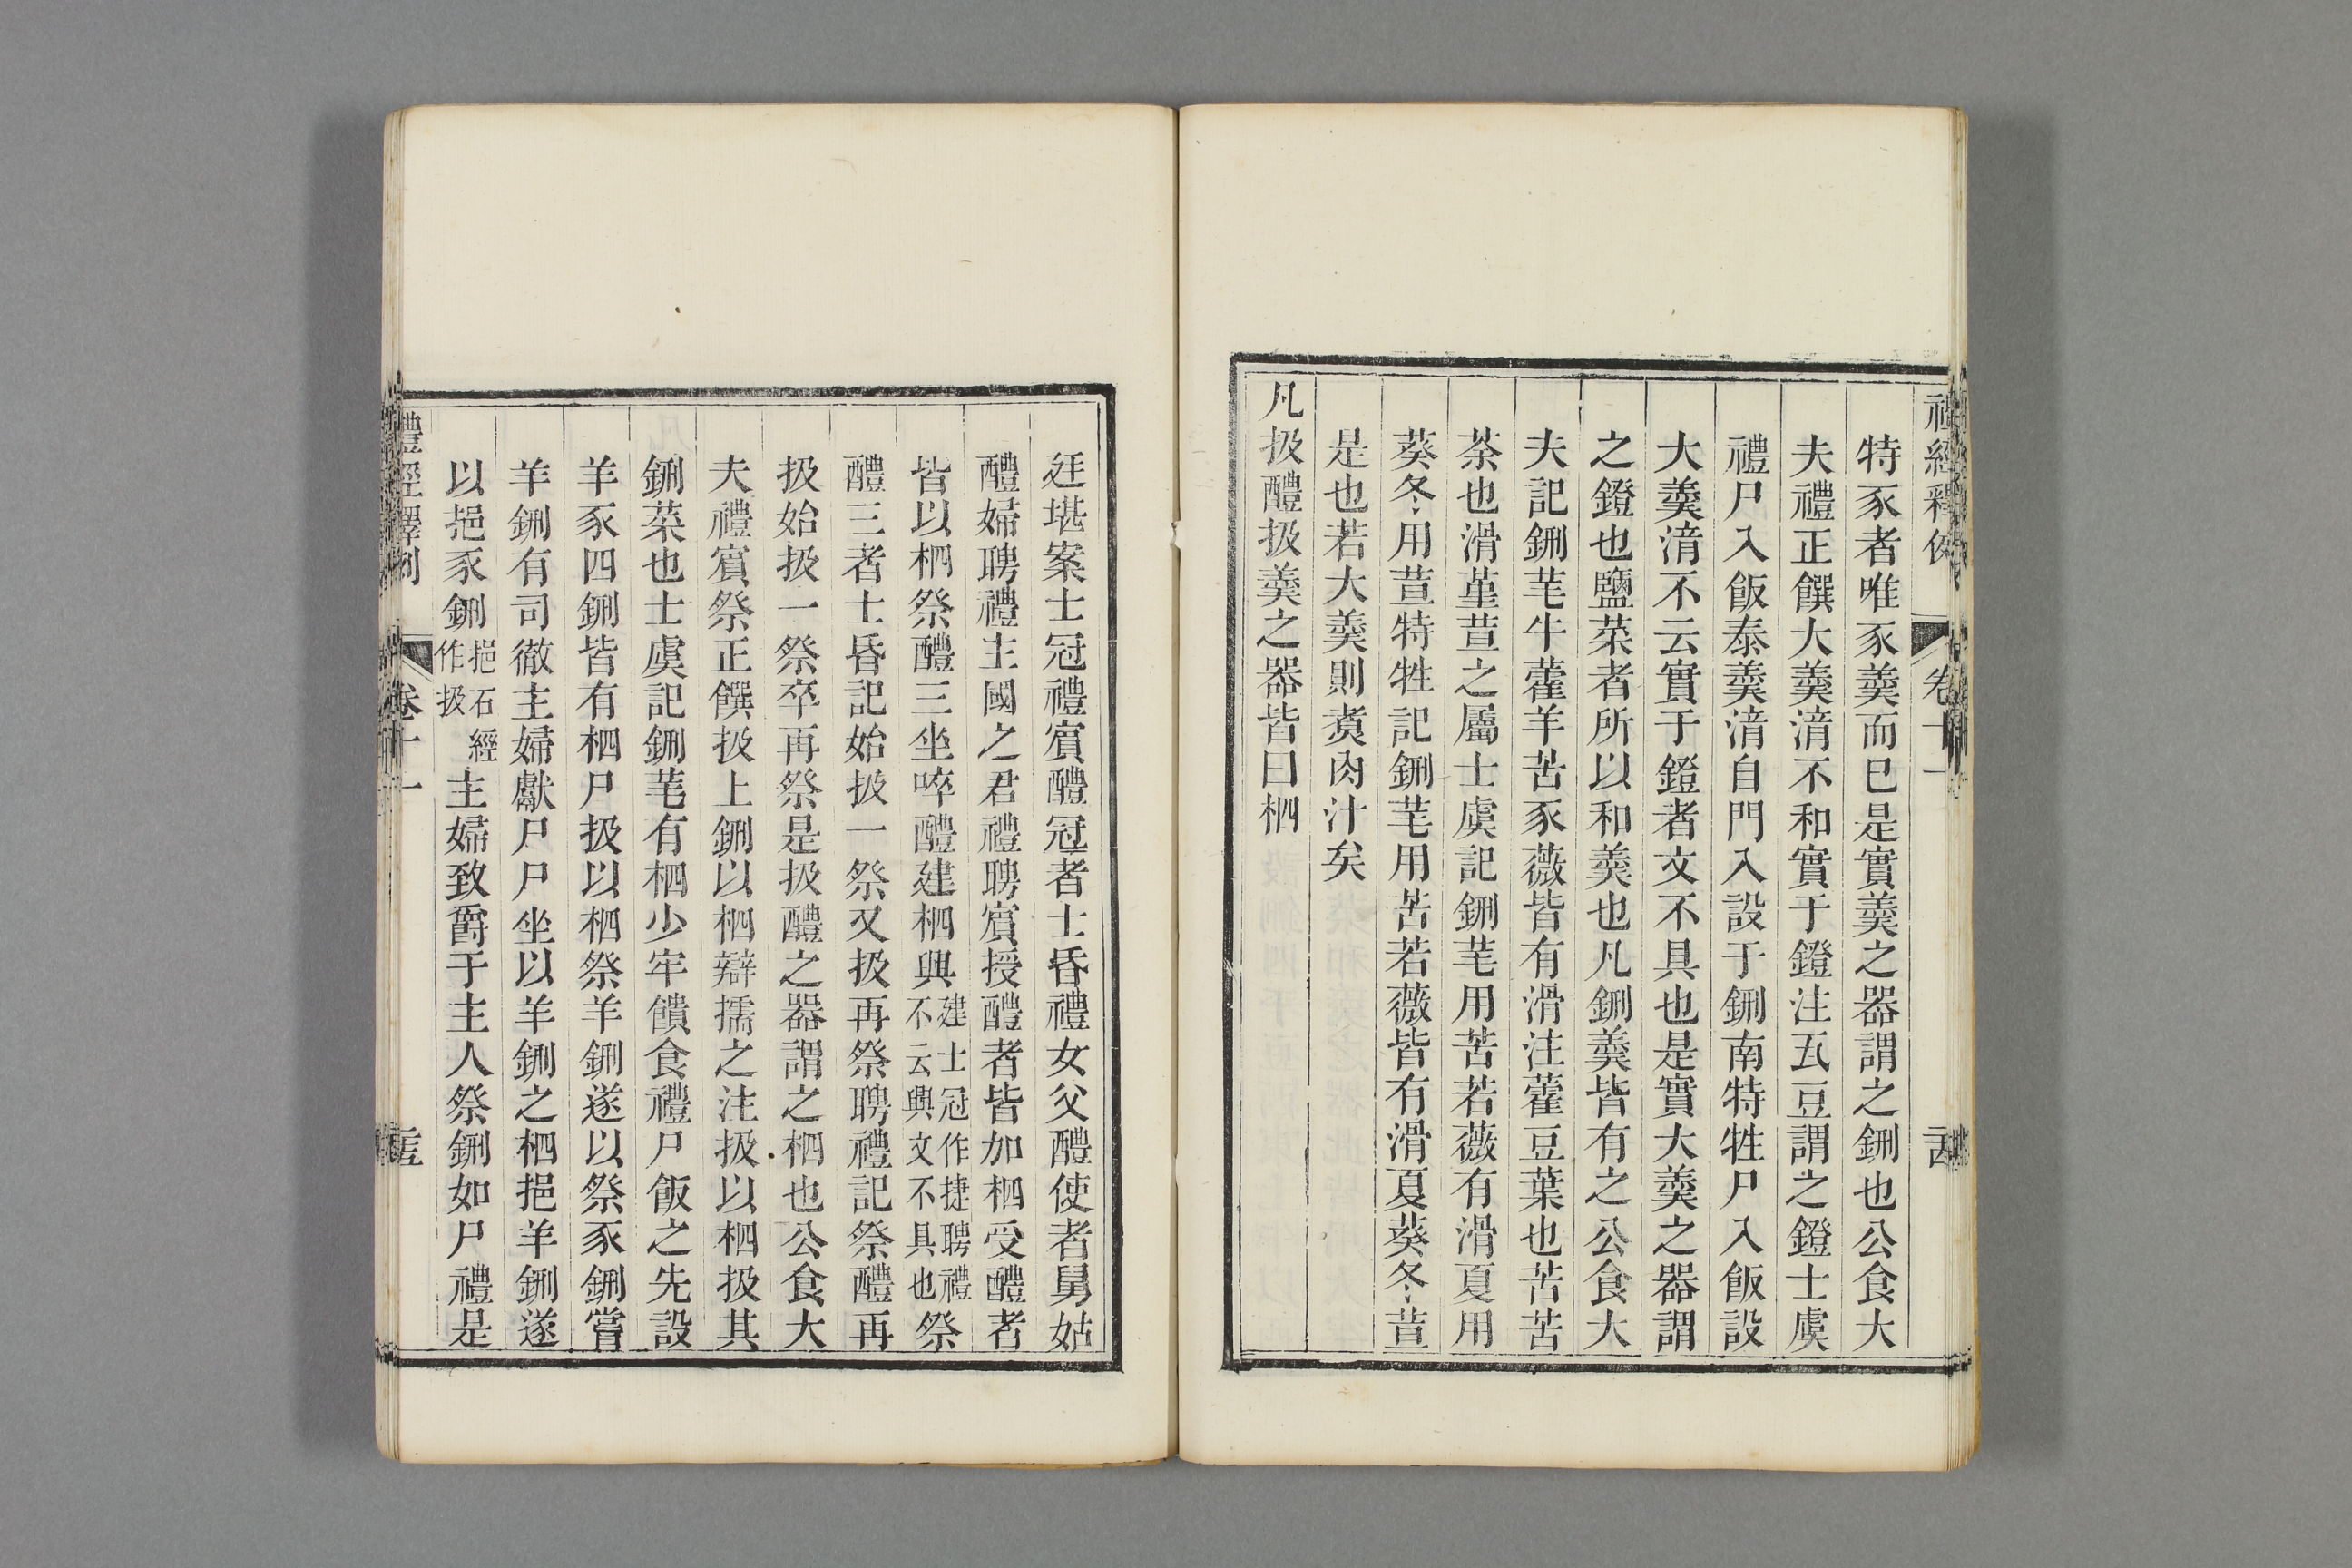 禮經釋例 卷十一
特豕者唯豕羹而已是實羹之器謂之鉶也公食大
夫禮正饌大羹湆不和實于鐙注瓦豆謂之鐙士虞
禮尸入飯泰羹湆自門入設于鉶南特牲尸入飯設
大羹湆不云實于鐙者文不具也是實大羹之器謂
之鐙也鹽菜者所以和羹也凡鉶羹皆有之公食大
夫記鉶芼牛藿羊苦豕薇皆有滑注藿豆葉也苦苦
荼也滑堇荁之屬士虞記鉶芼用苦若薇有滑夏用
葵冬用荁特牲記鉶芼用苦若薇皆有滑夏葵冬荁
是也若大羹則煑肉汁矣
凡扱醴扱羹之器皆曰柶
廷堪案士冠禮賓醴冠者士昏禮女父醴使者舅姑
醴婦聘禮主國之君禮聘賓授醴者皆加柶受醴者
皆以柶祭醴三坐啐醴建柶興建士冠作捷聘禮不云興文不具也祭
醴三者士昏記始扱一祭又扱再祭聘禮記祭醴再
扱始扱一祭卒再祭是扱醴之器謂之柶也公食大
夫禮賓祭正饌扱上鉶以柶辯擩之注扱以柶扱其
鉶菜也士虞記鉶芼有柶少牢饋食禮尸飯之先設
羊豕四鉶皆有柶尸扱以柶祭羊鉶遂以祭豕鉶嘗
羊鉶有司徹主婦獻尸尸坐以羊鉶之柶挹羊鉶遂
以挹豕鉶挹石經作扱主婦致爵于主人祭鉶如尸禮是
禮經釋例 卷十一